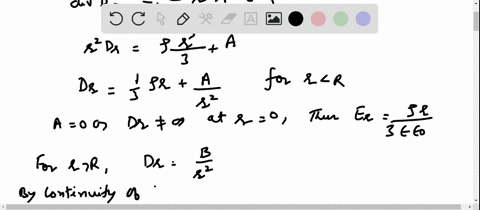 r²Dr = ρ r³/3 + A
Dr = 1/3 ρr + A/r² for r<R
A=0 as Dr ≠ ∞ at r=0, Then Er = ρr/3 ∈ ∈o
For r>R, Dr = B/r²
By continuity of